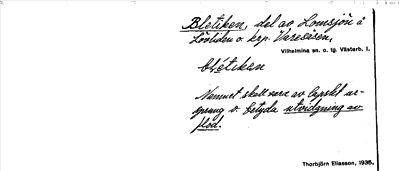 Bletiken, del av Lomsjön å
Lövliden o. krp. Vareeisen,
Vilhelmina sn. o. tg. Västerb. l.
blétiken
Namnet skall vara av lapskt ur-
sprung o. betyda utvidgning av
flod.
Thorbjörn Eliasson, 1935.